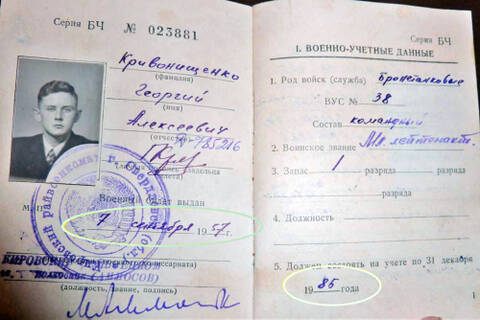 Серия БЧ № 023881
Кривонищенко
(фамилия)
Георгий
(имя)
Алексеевич
(отчество)
Военный билет выдан
7 сентября 1957 г.
(должность, звание, подпись)
Серия БЧ
I. ВОЕННО-УЧЕТНЫЕ ДАННЫЕ
1. Род войск (служба) Бронетанковые
ВУС № 38
Состав командный
2. Воинское звание Мл. лейтенант
3. Запас 1 разряда
разряда
4. Должность
5. Должен состоять на учете по 31 декабря
1985 года
1